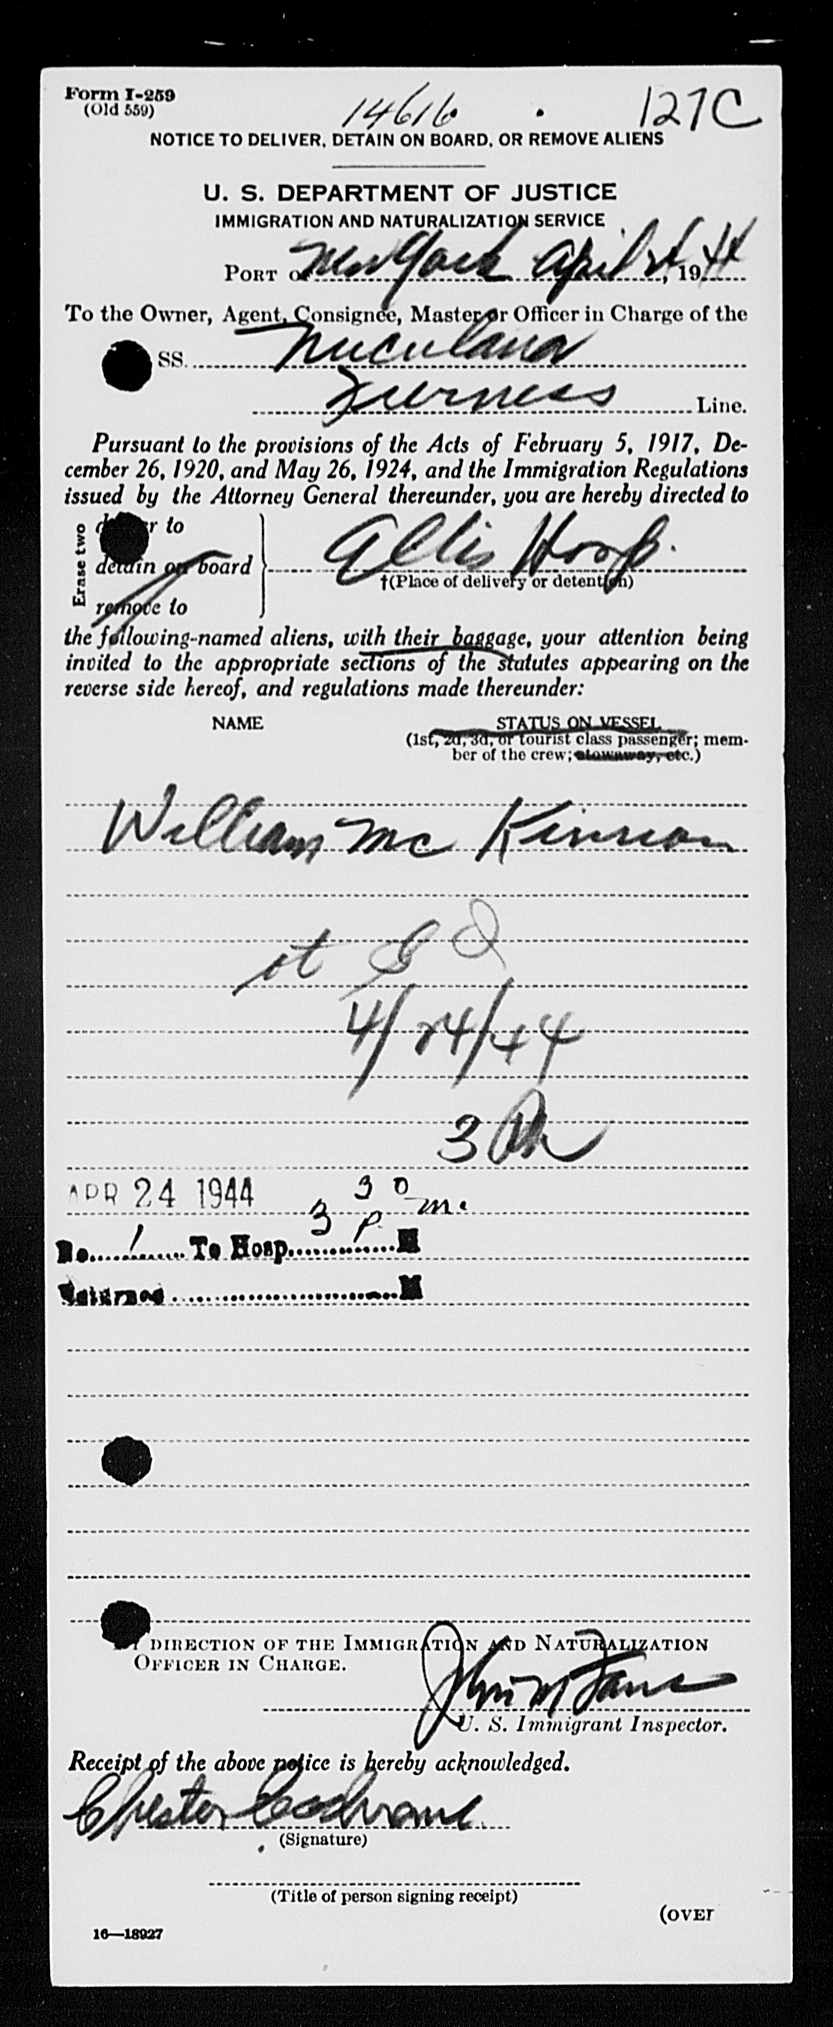 Form I-259
(Old 559)
14616
127C
NOTICE TO DELIVER, DETAIN ON BOARD, OR REMOVE ALIENS
U. S. DEPARTMENT OF JUSTICE
IMMIGRATION AND NATURALIZATION SERVICE
PORT of New York April 24, 1944
To the Owner, Agent, Consignee, Master or Officer in Charge of the
SS. Nuculana
Furness Line.
Pursuant to the provisions of the Acts of February 5, 1917, De-
cember 26, 1920, and May 26, 1924, and the Immigration Regulations
issued by the Attorney General thereunder, you are hereby directed to
Erase two
deliver to
detain on board
remove to
Ellis Hosp.
†(Place of delivery or detention)
the following-named aliens, with their baggage, your attention being
invited to the appropriate sections of the statutes appearing on the
reverse side hereof, and regulations made thereunder:
NAME
STATUS ON VESSEL
(1st, 2d, 3d, or tourist class passenger; mem-
ber of the crew; stowaway, etc.)
William Mc Kinnon
at
4/24/44
3 Pm
APR 24 1944
3 30 P m.
No. 1 To Hosp. M
Returned M
BY DIRECTION OF THE IMMIGRATION AND NATURALIZATION
OFFICER IN CHARGE.
John M
U. S. Immigrant Inspector.
Receipt of the above notice is hereby acknowledged.
Chester Cochrane
(Signature)
(Title of person signing receipt)
(OVER
16—18927